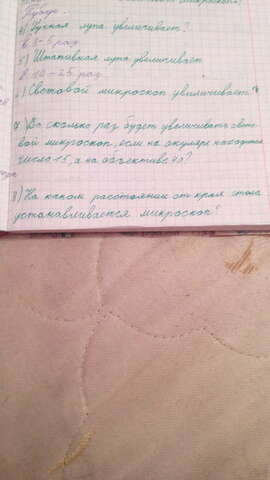 4) Ручная лупа увеличивает?
в 2-5 раз.
5) Штативная лупа увеличивает
в 10-25 раз
6) Световой микроскоп увеличивает?
7) Во сколько раз будет увеличивать свето-
вой микроскоп, если на окуляре находится
число 15, а на объективе 40?
8) На каком расстоянии от края стола
устанавливается микроскоп?